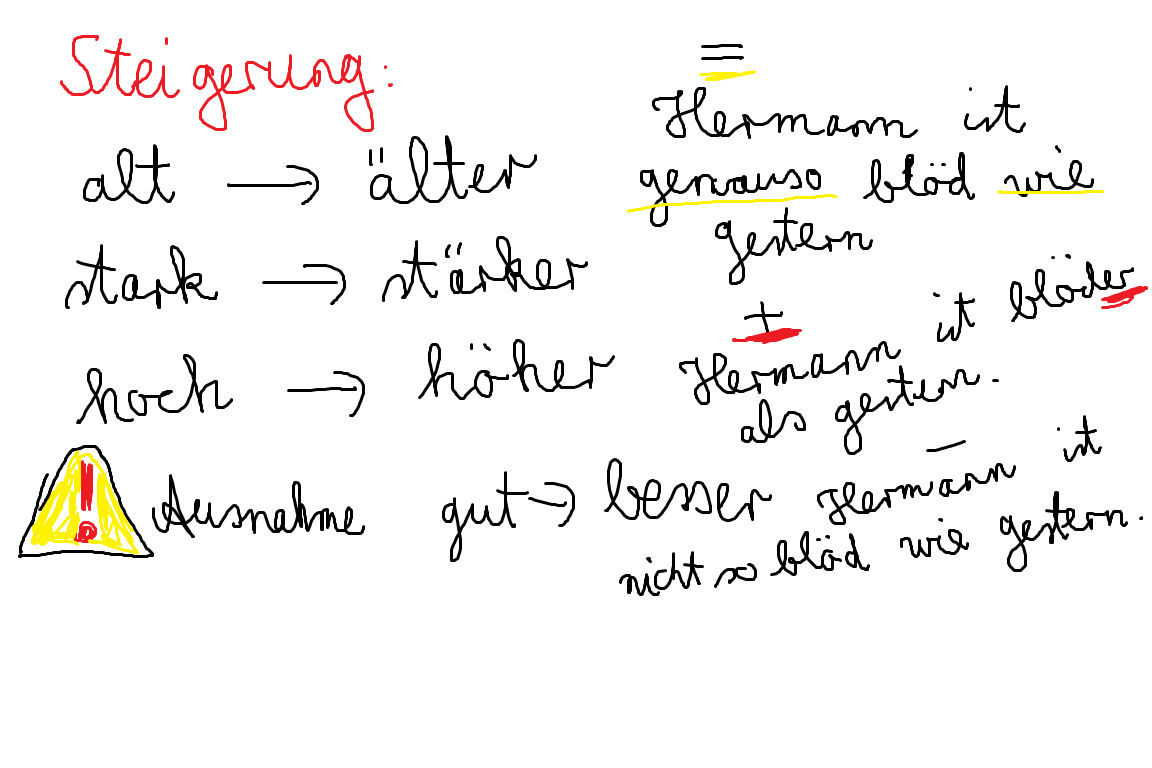 Steigerung:
alt → älter
stark → stärker
hoch → höher
! Ausnahme gut → besser
=
Hermann ist
genauso blöd wie
gestern
+
Hermann ist blöder
als gestern.
–
Hermann ist
nicht so blöd wie gestern.